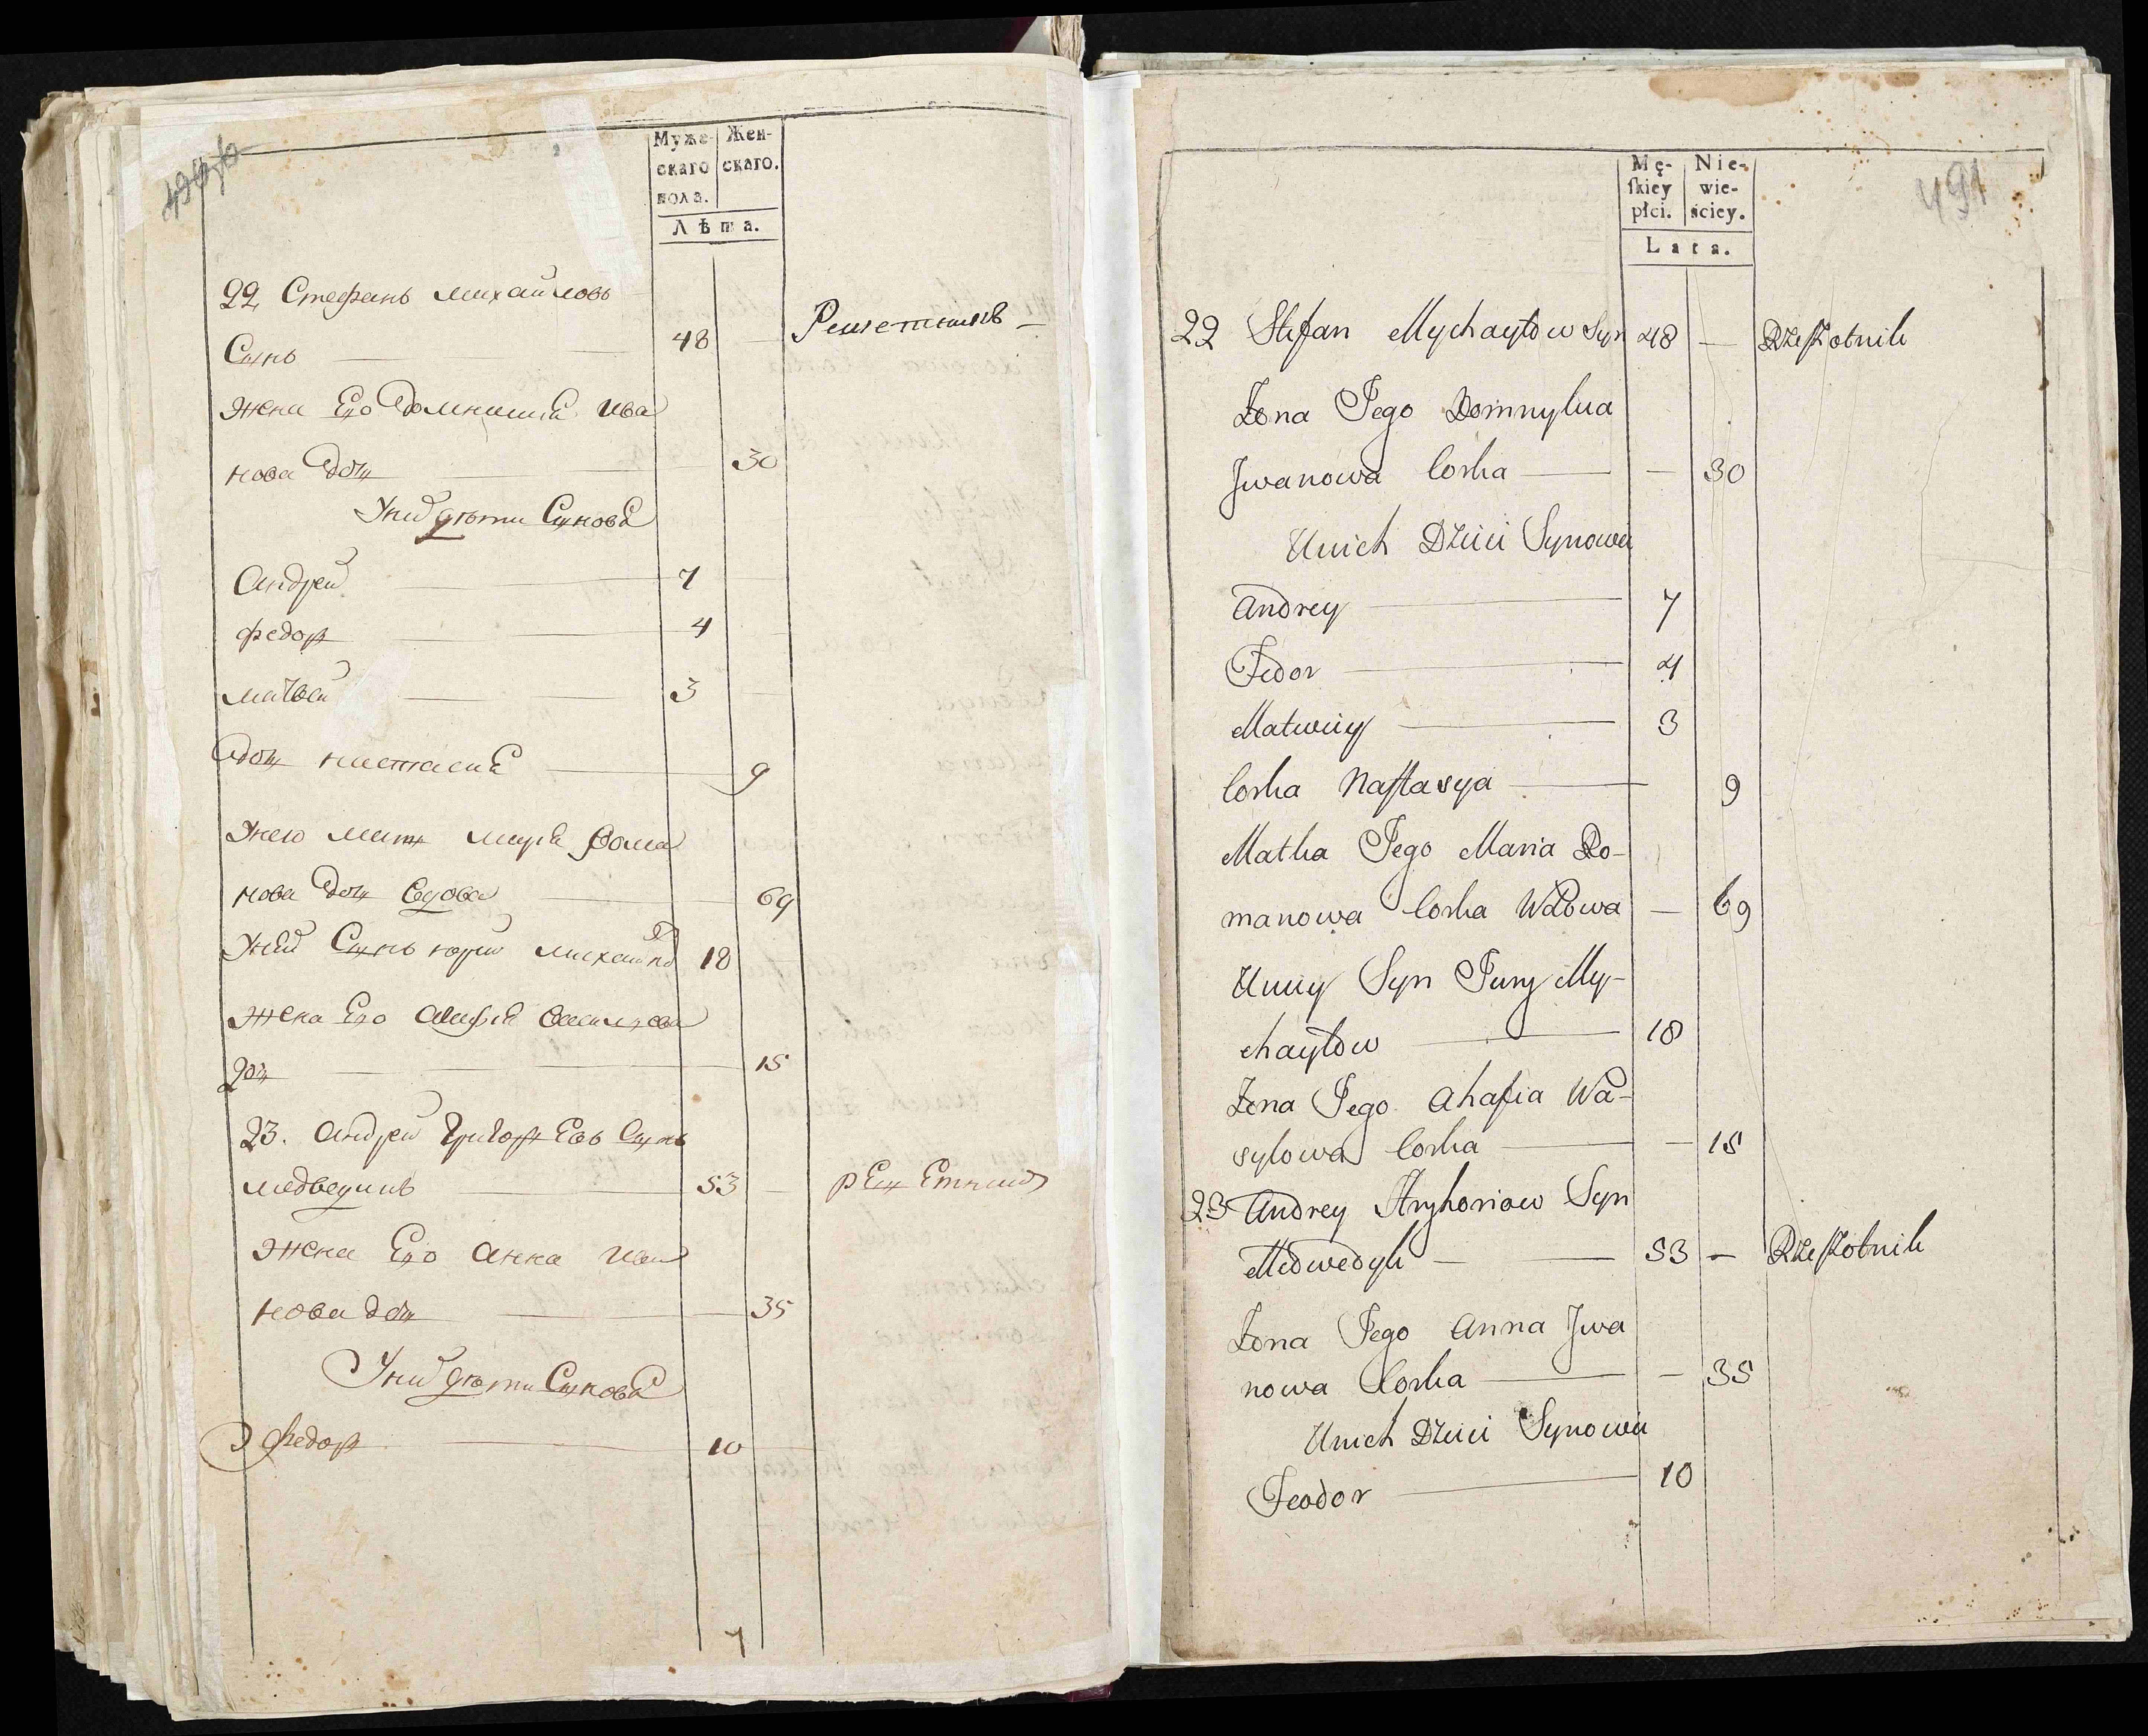 Муже-
скаго
пола.
Жен-
скаго.
Лѣта.
22 Стефанъ михайловъ
Сынъ 48 Решетникъ
жена Его домникия Ива
нова дочь 30
Униѣ дѣти Синовя
Андрей 7
федор 4
матвей 3
дочь настасия 9
Его мать мария Рома
нова дочь вдова 69
Унеи Сынъ юрий михайло 18
жена Его Агафия василева
дочь 15
23. Андрей григор Евъ Сынъ
медведикъ 53 рЕшЕтник
жена Его Анна Ива
нова дочь 35
Униѣ дѣти Синовя
федор 10
7
491
Mę-
skiey
płci.
Nie-
wie-
ściey.
Lata.
22 Stefan Mychayłow Syn 48 — Rzeszotnik
Żona Jego Domnykia
Jwanowa Corka — 30
Unich Dzieci Synowie
Andrey 7
Fedor 4
Matwiey 3
Corka Nastasya 9
Matka Jego Maria Ro-
manowa Corka Wdowa — 69
Uniey Syn Jury My-
chayłow 18
Żona Jego Ahafia Wa-
sylowa Corka — 15
23 Andrey Hryhoriow Syn
Medwedyk — 53 — Rzeszotnik
Żona Jego Anna Jwa
nowa Corka — 35
Unich Dzieci Synowie
Feodor 10